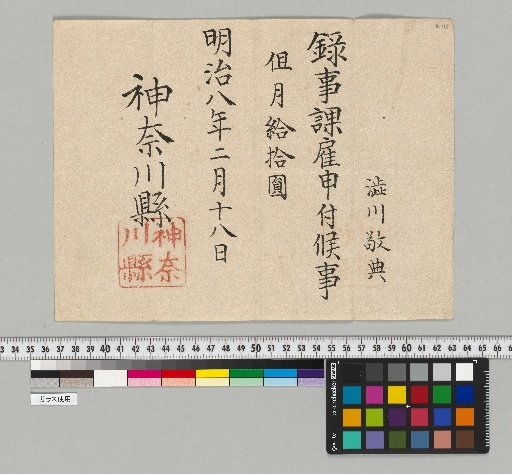 澁川敬典
録事課雇申付候事
但月給拾圓
明治八年二月十八日
神奈川縣
神奈
川縣
33 34 35 36 37 38 39 40 41 42 43 44 45 46 47 48 49 50 51 52 53 54 55 56 57 58 59 60 61 62 63 64 65 66
ガラス使用